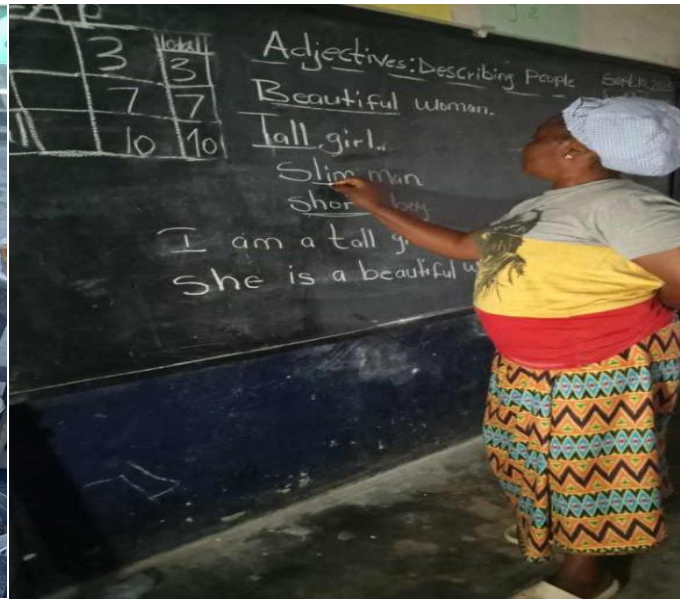 A P
3 Total 3
7 7
10 10
Adjectives: Describing People
Sept.
Beautiful woman.
Tall girl.
Slim man
Short boy
I am a tall
She is a beautiful